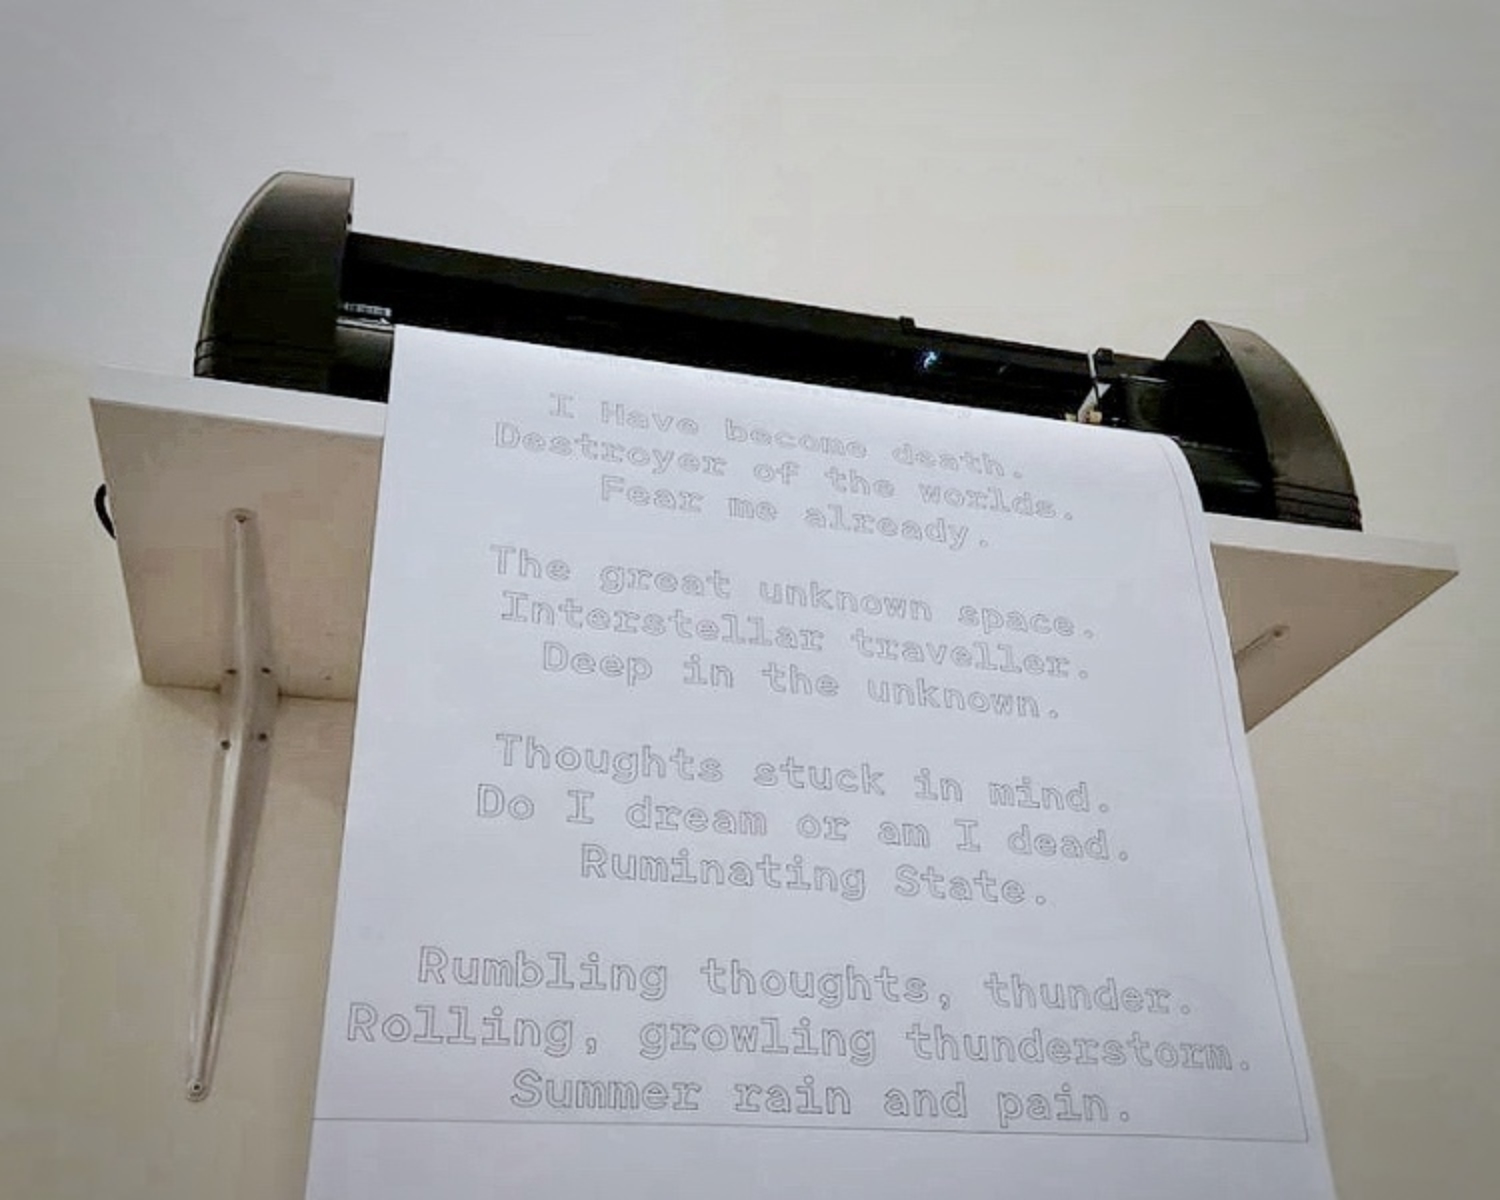 I Have become death.
Destroyer of the worlds.
Fear me already.
The great unknown space.
Interstellar traveller.
Deep in the unknown.
Thoughts stuck in mind.
Do I dream or am I dead.
Ruminating State.
Rumbling thoughts, thunder.
Rolling, growling thunderstorm.
Summer rain and pain.